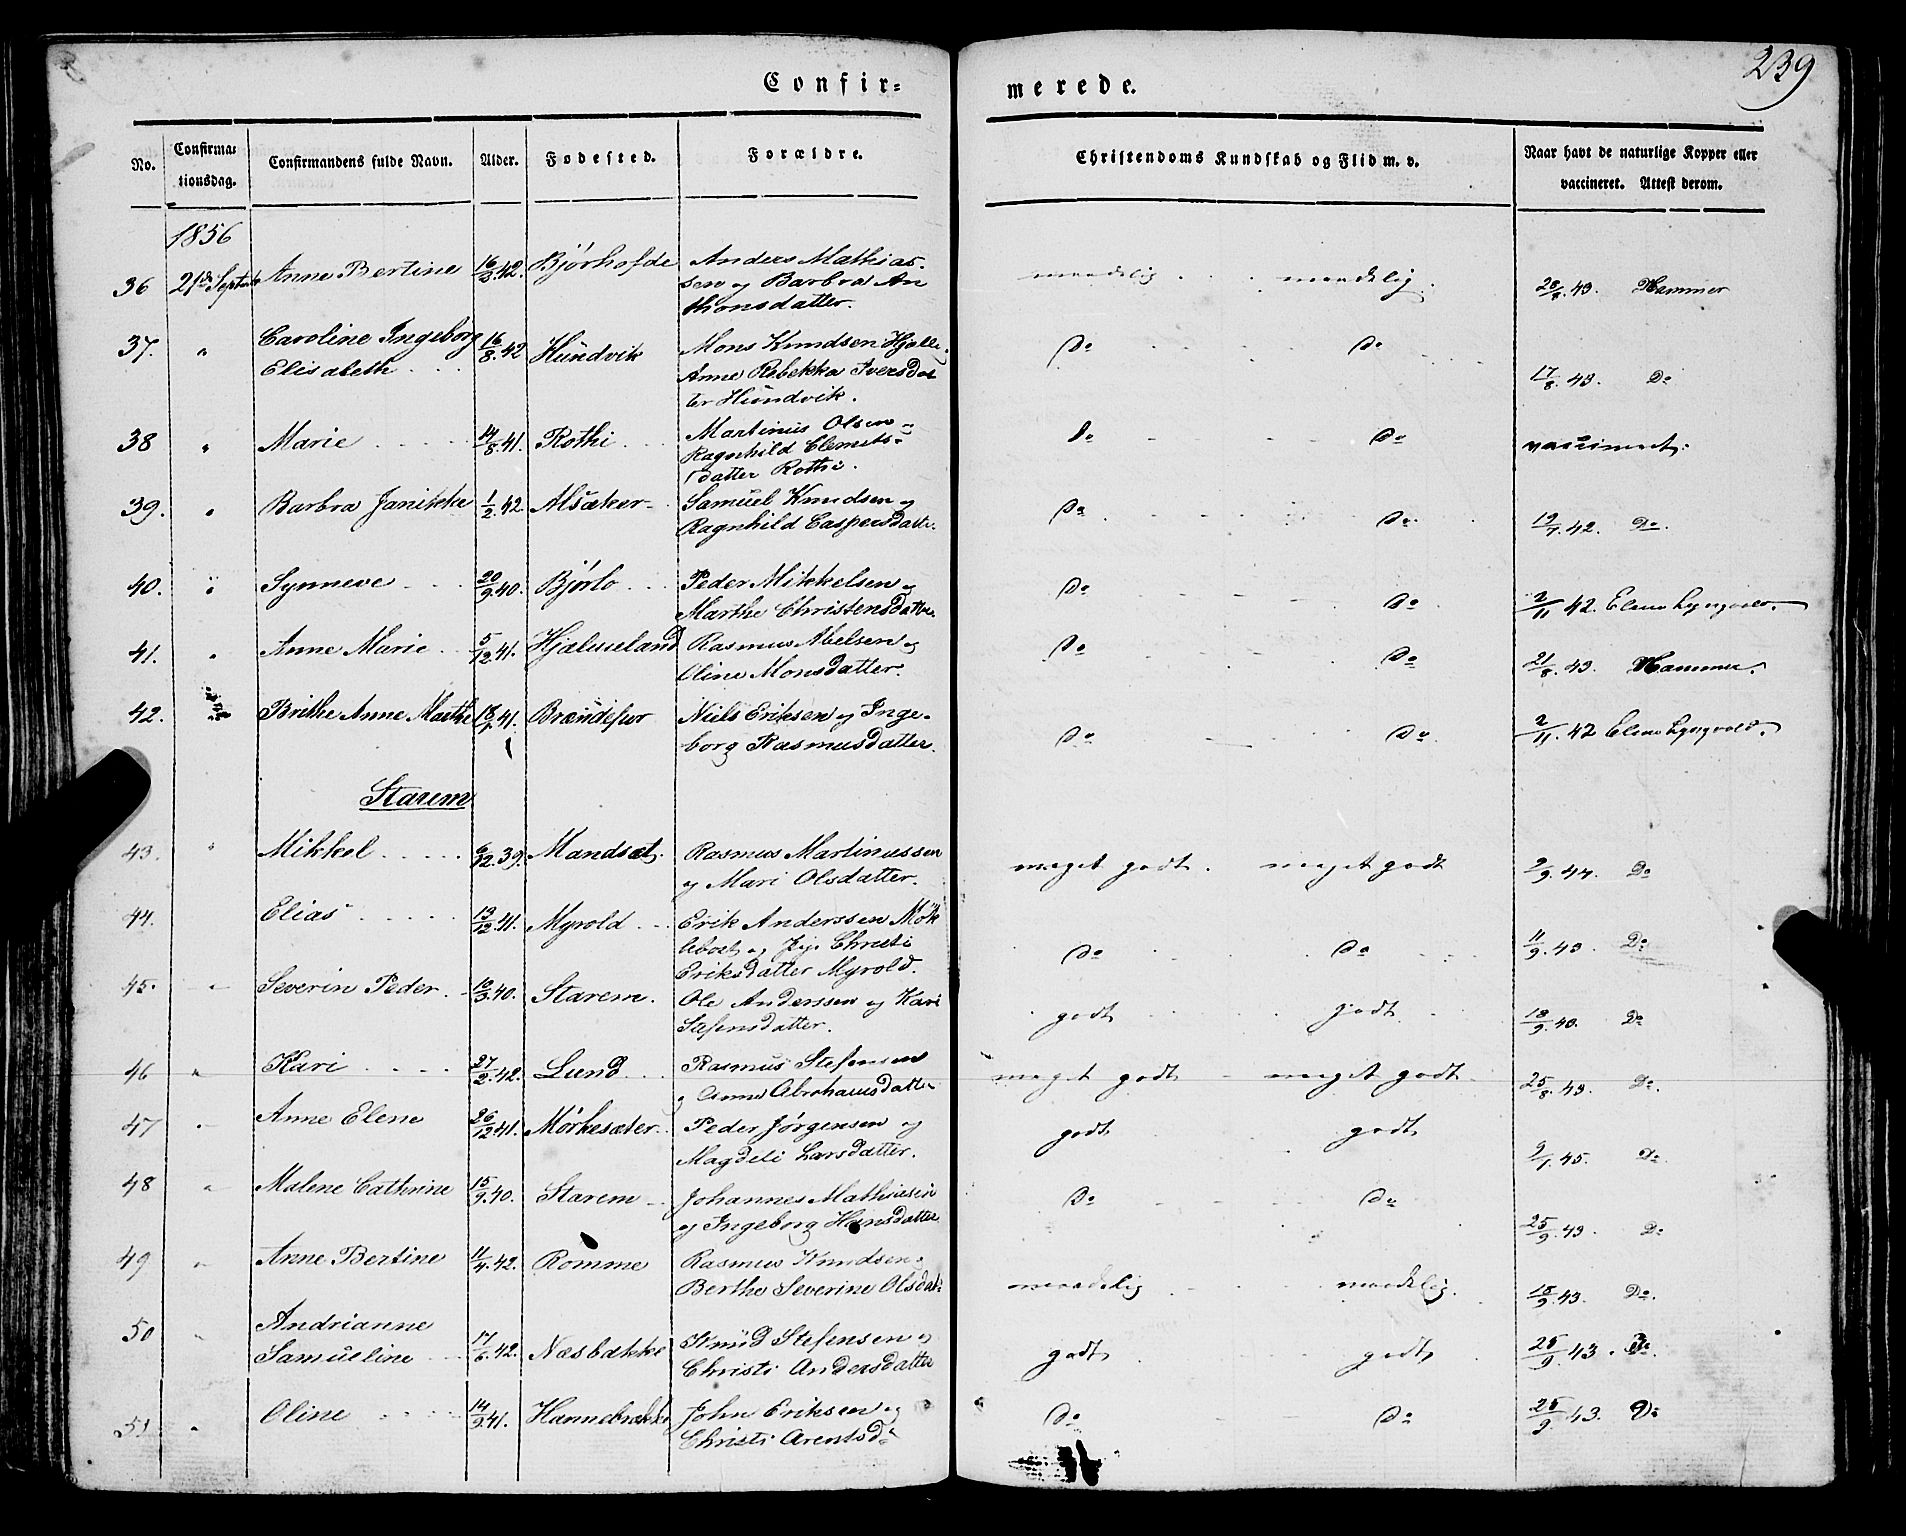 239
Confir= merede.
No. Confirmationsdag. Confirmandens fulde Navn. Alder. Fødested. Forældre. Christendoms Kundskab og Flid m. v. Naar havt de naturlige Kopper eller vaccineret. Attest derom.
1856
36 21de Septmb Anne Bertine 16/2.42. Bjørhofde Anders Mathias-
sen og Barbra An
thonsdatter. maadelig maadelig. 28/8.43. Hammer
37. " Caroline Ingeborg 16/8.42 Hundvik Mons Knudsen Hjelle
Elisabeth Anne Rebekka Iversdat
ter Hundvik. Do Do 17/8.43. Do
38 " Marie 14/8.41. Rothi Martinus Olsen og
Ragnhild Clemets-
datter Rothi. do Do vaccineret.
39. " Barbra Janikke 1/2.42. Alsaker Samuel Knudsen og
Ragnhild Caspersdatter. Do Do 19/7.42. Do.
40. " Synneve 20/9.40. Bjørlo Peder Mikkelsen og
Marthe Christensdatter. Do Do 2/11 42.
41. " Anne Marie 5/12.41. Hjelmeland Rasmus Abelsen og
Oline Monsdatter. Do Do 21/8.43. Hammer.
42. " Brithe Anne Marthe 41. Niels Eriksen og Inge-
borg Rasmusdatter. Do Do 2/11.42
Starem
43. " Mikkel 6/12.39. Mandsæt. Rasmus Martinussen
og Mari Olsdatter. meget godt. meget godt 9/9.44. Do
44. Elias 13/12.41. Myrold Erik Anderssen Møk
lebost og Christi
Eriksdatter Myrold. Do Do 11/9.43. Do
45. " Severin Peder 40. Starem. Ole Anderssen og Kari
Stefensdatter. godt godt 18/9.40. Do
46 " Kari 27/2.42. Lund Rasmus Stefensen
og Anne Abrahamsdatter meget godt meget godt 25/8.43. Do.
47 " Anne Elene 26/12.41. Mørkesæter Peder Jørgensen og
Magdeli Larsdatter. godt godt 45. Do
48 " Malene Cathrine 15/9.40. Starem Johannes Mathiesen
og Ingeborg Hansdatter Do Do 25/9.43. Do
49 " Anne Bertine 11/4.42. Romme Rasmus Knudsen og
Berthe Severine Olsdat: maadelig maadelig. 15/9.43. Do.
50 " Andrianne
Samueline 17/6.42. Næsbakke Knud Stefensen og
Christi Andersdatter godt godt 25/9.43. Do.
51 " Oline 14/9.41. John Eriksen og
Christi Arentsd: Do Do 25/9 43. Do